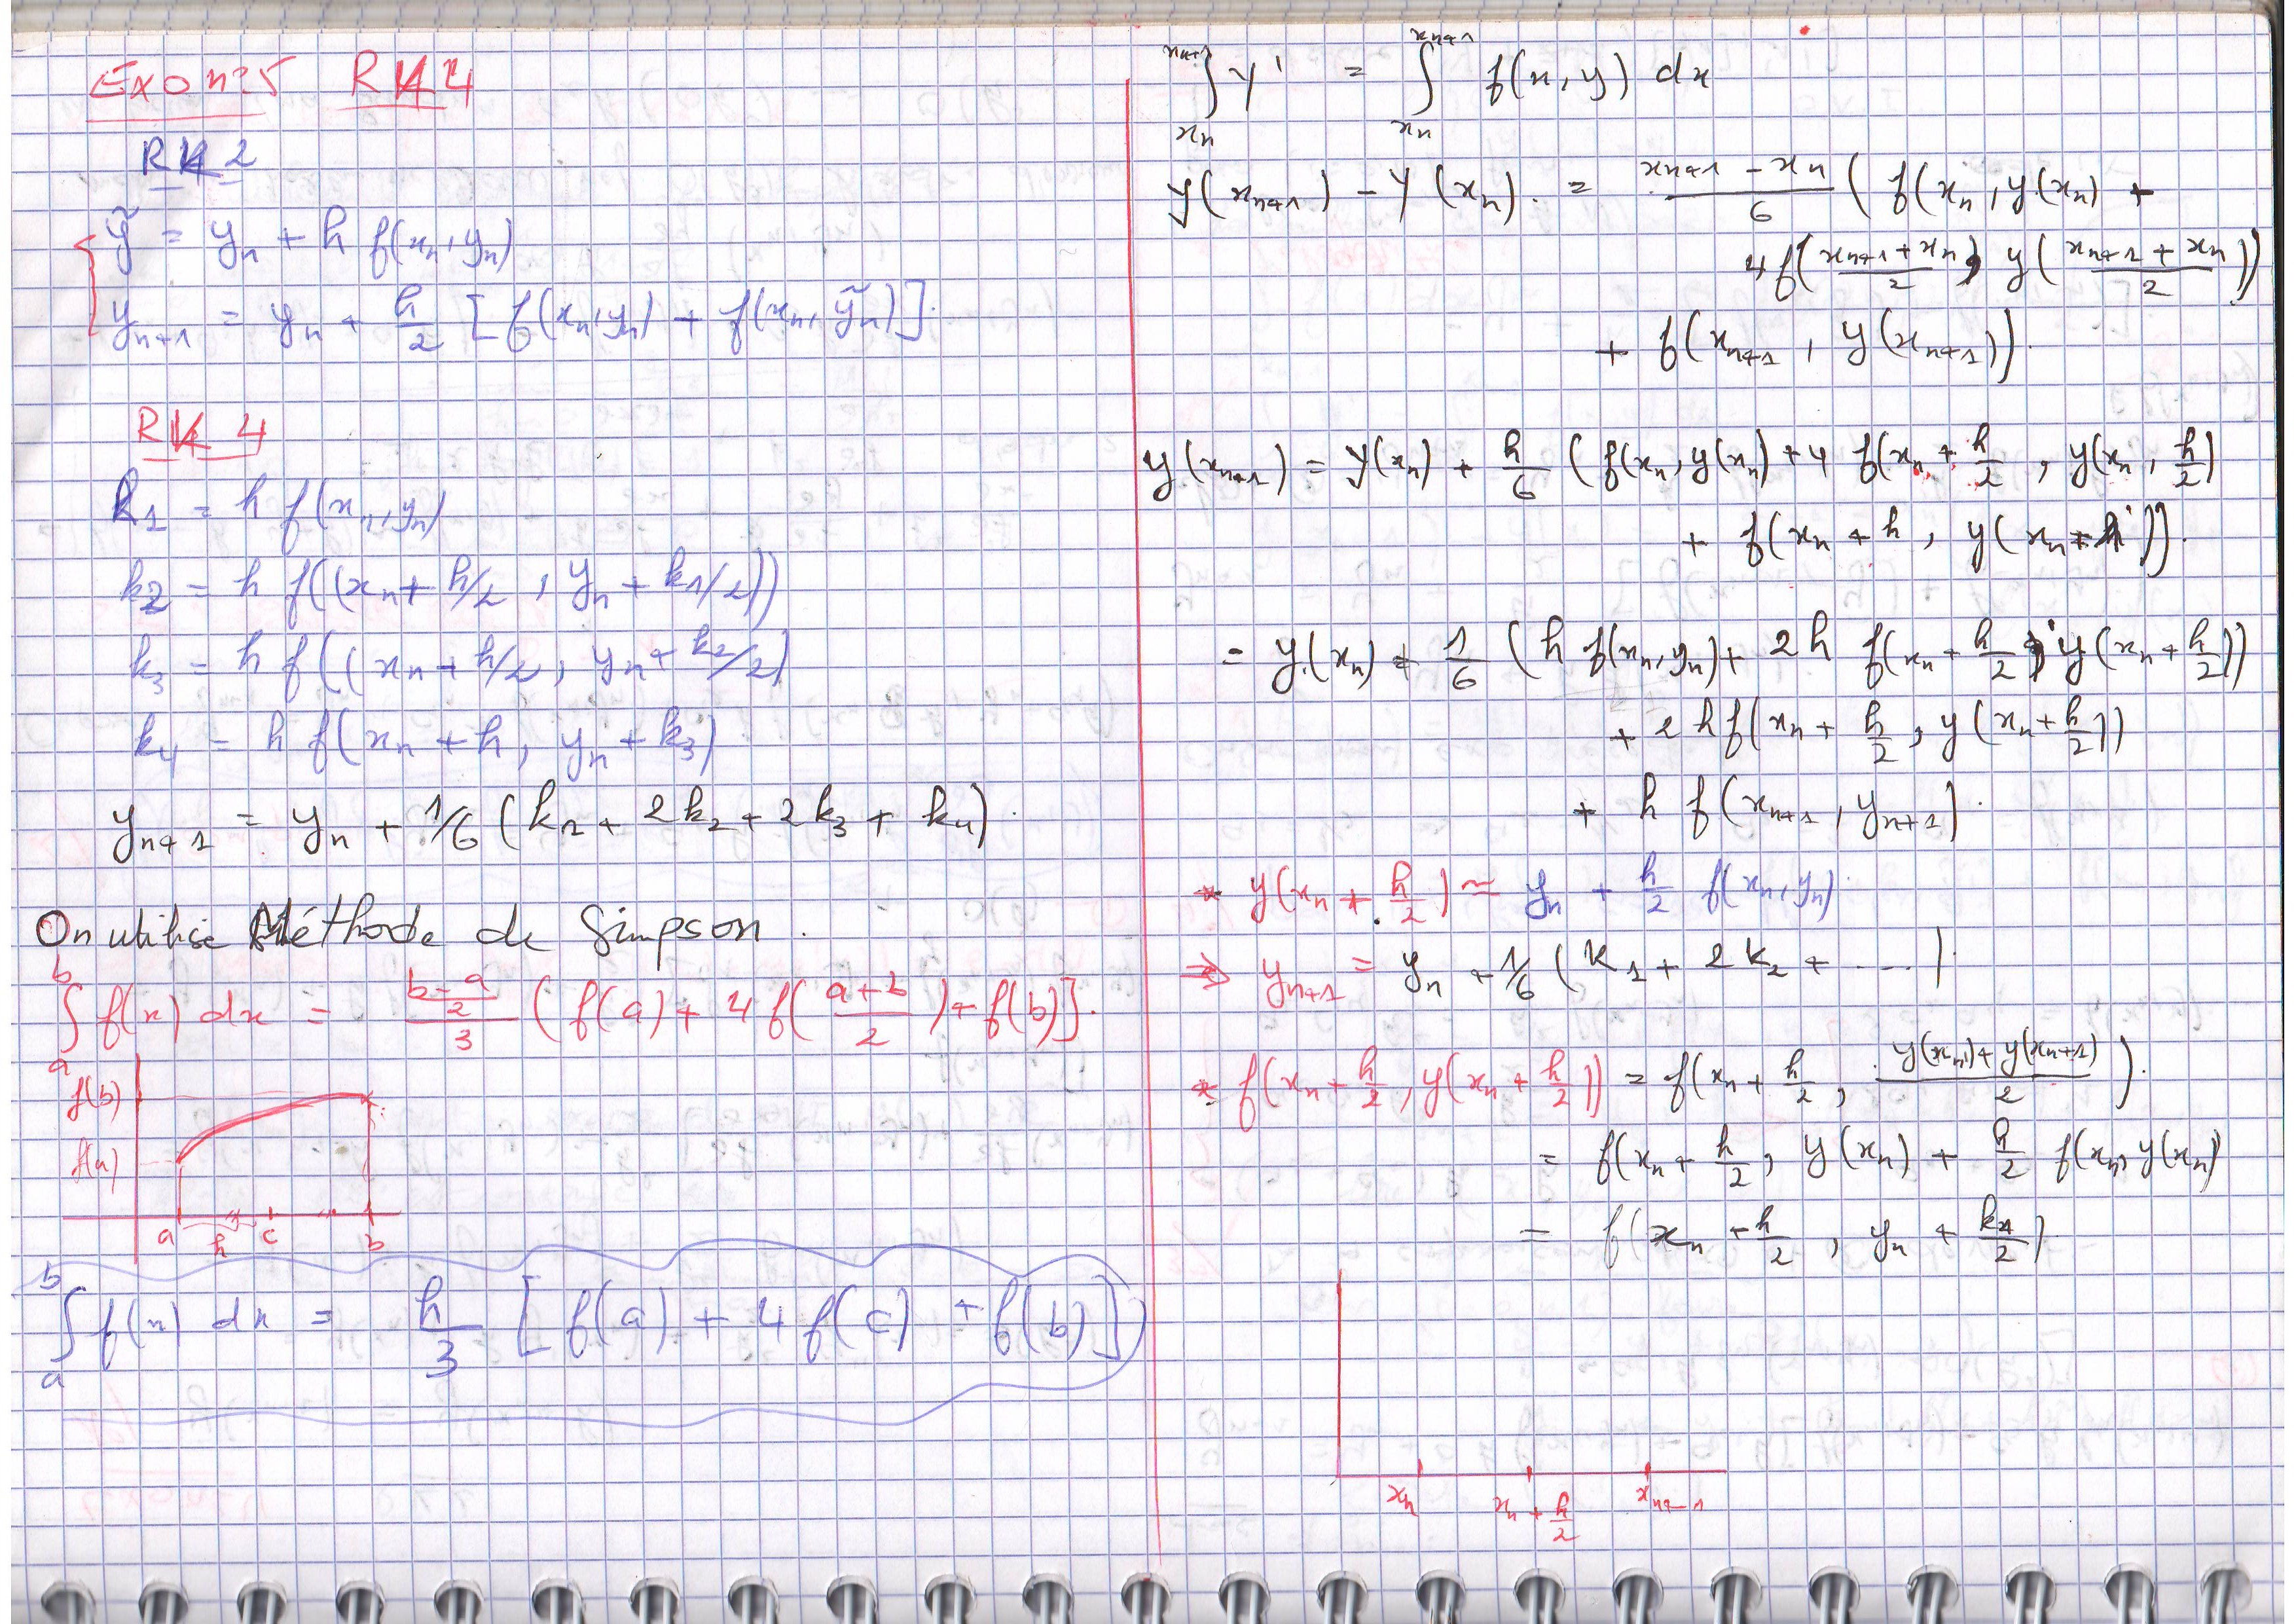 Exo n°5 RK4
RK2
ỹ = yn + h f(xn, yn)
yn+1 = yn + h/2 [f(xn, yn) + f(xn, ỹn)].
RK 4
k1 = h f(xn, yn)
k2 = h f((xn + h/2 , yn + k1/2))
k3 = h f((xn + h/2 , yn + k2/2)
k4 = h f(xn + h, yn + k3)
yn+1 = yn + 1/6 (k1 + 2k2 + 2k3 + k4).
On utilise Méthode de Simpson.
∫_a^b f(x) dx = ((b-a)/2)/3 ( f(a) + 4 f((a+b)/2) + f(b)].
f(b)
f(a)
a h c b
∫_a^b f(x) dx = h/3 [f(a) + 4 f(c) + f(b)]
∫_xn^xn+1 y' = ∫_xn^xn+1 f(x, y) dx
y(xn+1) - y(xn). = (xn+1 - xn)/6 ( f(xn, y(xn) +
4f((xn+1 + xn)/2, y((xn+1 + xn)/2))
+ f(xn+1, y(xn+1)).
y(xn+1) = y(xn) + h/6 (f(xn, y(xn) + 4 f(xn + h/2, y(xn, h/2)
+ f(xn + h, y(xn + h)).
= y(xn) + 1/6 (h f(xn, yn) + 2h f(xn + h/2, y(xn + h/2))
+ 2hf(xn + h/2, y(xn + h/2))
+ h f(xn+1, yn+1).
* y(xn + h/2) ≃ yn + h/2 f(xn, yn).
⇒ yn+1 = yn + 1/6 (k1 + 2k2 + ....)
* f(xn + h/2, y(xn + h/2)) = f(xn + h/2, (y(xn) + y(xn+1))/2).
= f(xn + h/2, y(xn) + h/2 f(xn, y(xn)
= f(xn + h/2, yn + k1/2).
xn xn + h/2 xn+1